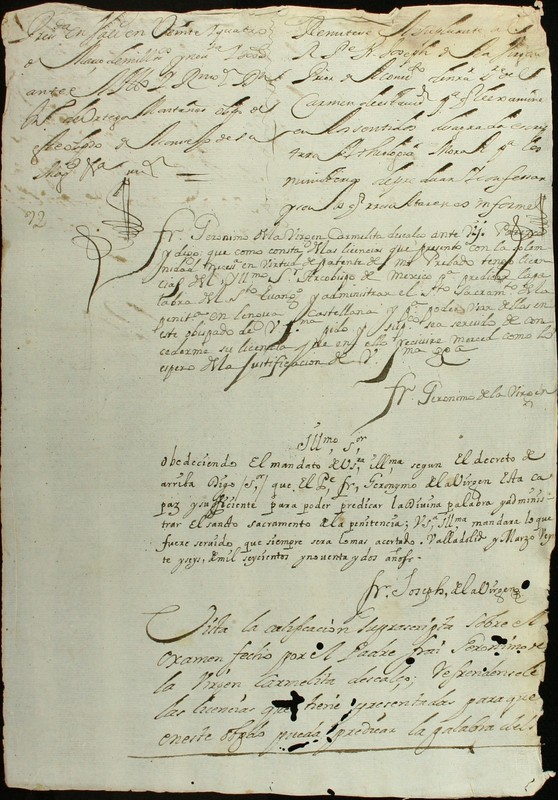 en Valld en Veinte y quatro
de Março de mill
ante el
Ortega Montañes obpo de
Mechoacan del Consejo de su
Magd
Remitese el suplicante a
R Pe fr Joseph de la Virgen
Prior de
Carmen de esta Ciud pa q le examine
en los sentidos de sagrada escri
tura Theologia Moral pa los
ministerios de predicar y Confessar
y con lo q resultare nos informe
92
fr. Geronimo de la Virgen Carmelita descalço ante V.S.
y digo que como consta de las licencias que presento con la solem
nidad en Virtud de patente de mi Prelado tengo licen
cias del Yllmo Sr Arcobispo de Mexico pa predicar la pa
labra del Sto Euango y administrar el Sto Sacramto de la
penita en lengua Castellana y pa poder usar de ellas en
este obispado de V Sma pido y suppco sea seruido de con
cederme su licencia que en ello reciuire merced como lo
espero de la Justificacion de V Sma
fr. Geronimo de la Virgen
Illmo Sr
obedeciendo el mandato de VSa illma segun el decreto de
arriba Digo (Sr) que el Pe fr, Geronymo de la Virgen Esta ca
paz y suficiente para poder predicar la Divina palabra y adminis
trar el santo sacramento de la penitencia; VSa Illma mandara lo que
fuere seruido que siempre sera lo mas acertado. Valladolid y Marzo Veyn
te y seys, de mil seyscientos y nouenta y dos años.
fr. Joseph, de la Virgen
Vista la calificacion suprascripta sobre el
examen fecho por el Padre frai Geronimo de
la Virgen Carmelita descalço; Refrendensele
las licencias que tiene presentadas para que
en este obpdo pueda predicar la palabra de